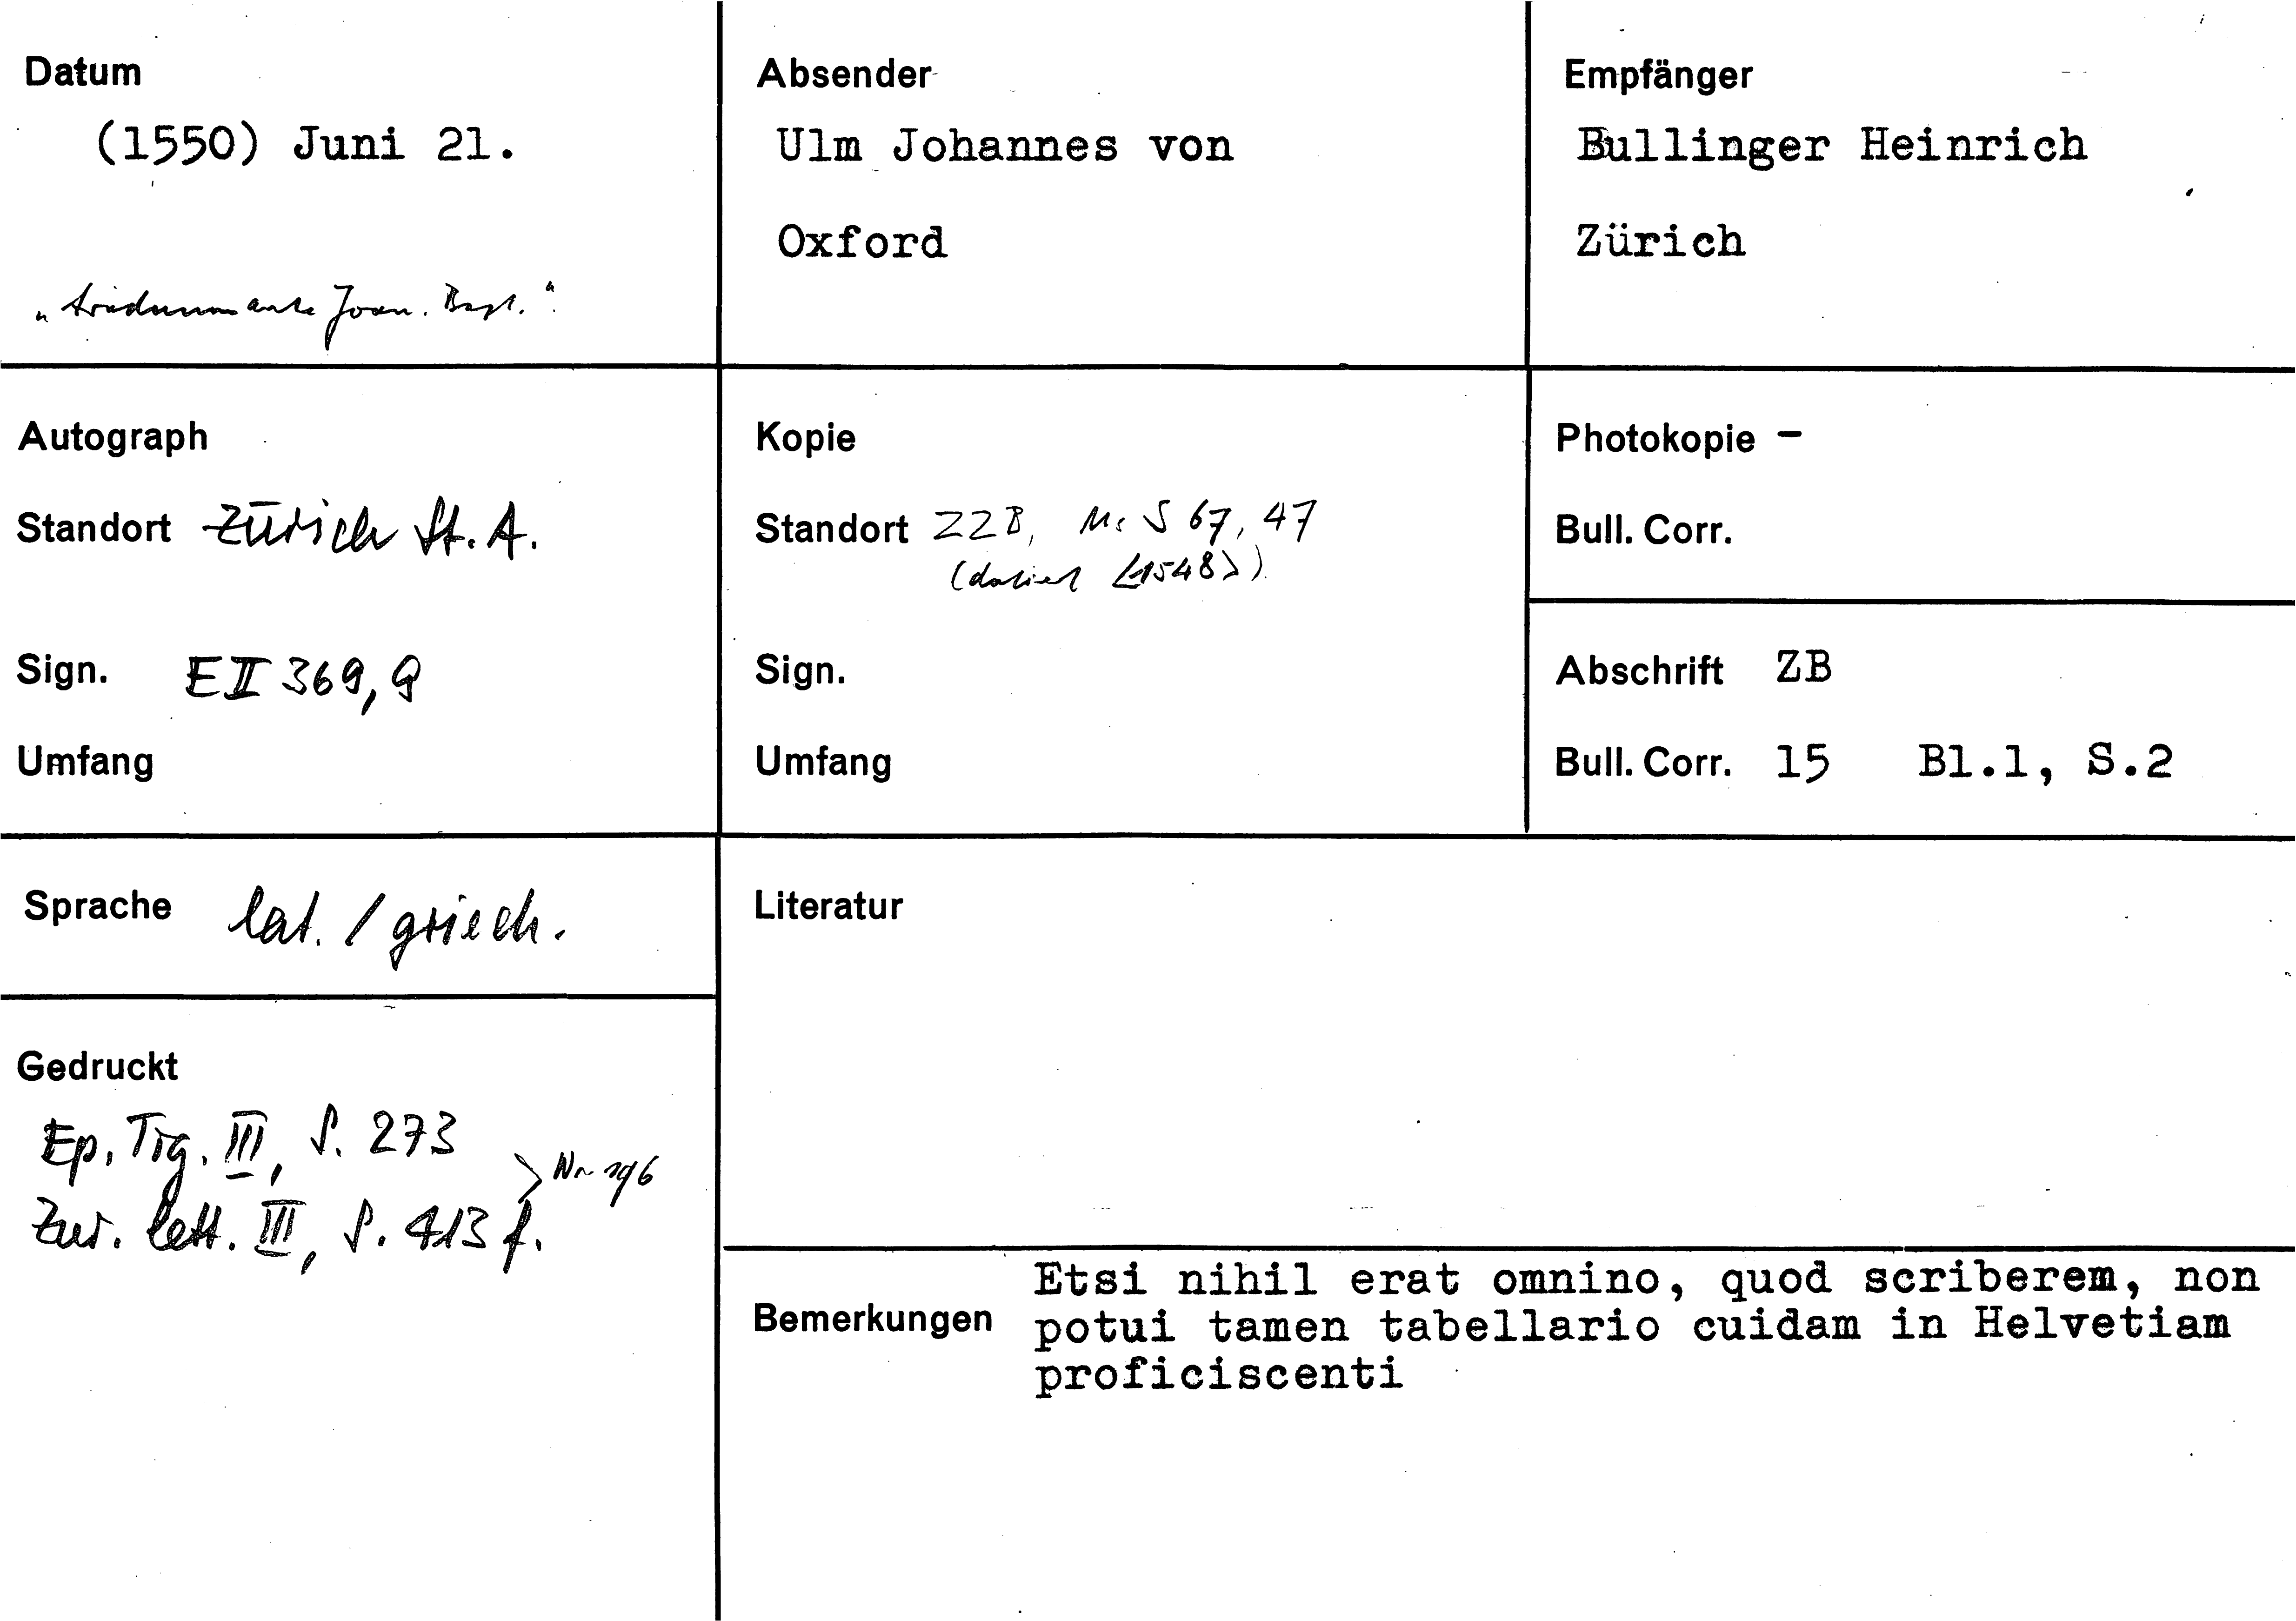 Datum
(1550) Juni 21.
„triduum ante Joan. Bapt.“
Absender
Ulm Johannes von
Oxford
Empfänger
Bullinger Heinrich
Zürich
Autograph
Standort Zürich St. A.
Sign. E II 369, 9
Umfang
Kopie
Standort ZZB, Ms S 67, 47
(datiert <1548>)
Sign.
Umfang
Photokopie –
Bull. Corr.
Abschrift ZB
Bull. Corr. 15 Bl.1, S.2
Sprache lat. / griech.
Literatur
Gedruckt
Ep. Tig. III, S. 273
Nr 196
Zur. lett. III, S. 413 f.
Bemerkungen
Etsi nihil erat omnino, quod scriberem, non
potui tamen tabellario cuidam in Helvetiam
proficiscenti